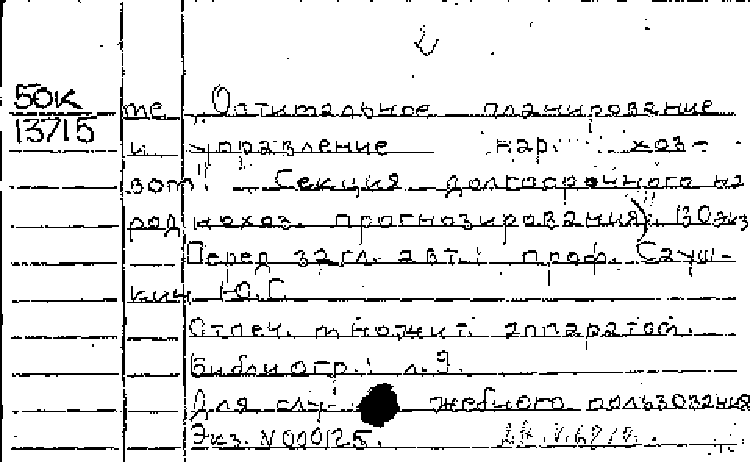 2
50К
13715
те „Оптимальное планирование
и управление нар. хоз-
вом". Секция долгосрочного на
роднохоз. прогнозирования). 130экз
Перед загл. авт.: проф. Сауш-
кин Ю.Г.
Отпеч. множит. аппаратом.
Библиогр.: л.9.
Для слу- жебного пользования
Экз. N 000125.